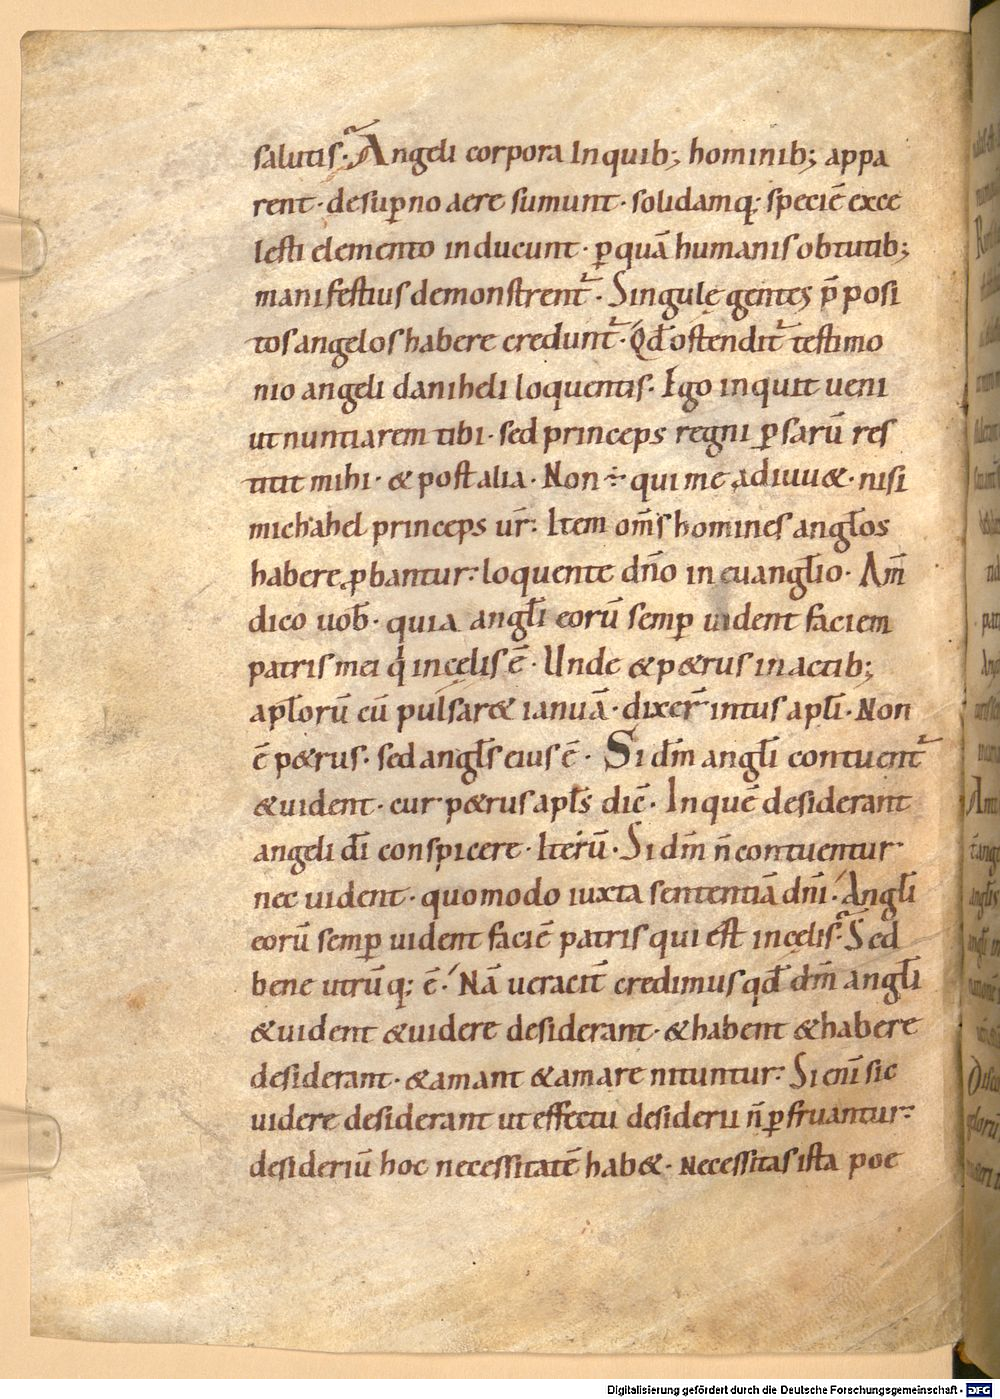 salutis. Angeli corpora Inquib; hominib; appa
rent · desup̲no aere sumunt · solidamq; speciē exce
lesti elemento inducunt · ꝑquā humanis obtutib;
manifestius demonstrent᷑ · Singulę gentes p̄posi
tos angelos habere credunt᷑ · Qđ ostendit᷑ testimo
nio angeli daniheli loquentis · Ego inquit ueni
ut nuntiarem tibi · sed princeps regni ꝑsarū res
titit mihi · & post alia · Non ÷ qui me adiuu& · nisi
michahel princeps ur̄: Item om̄s homines angl̄os
habere ꝓbantur: loquente dn̄o in euangl̄io · Am̄
dico uob̄ · quia angl̄i eorū semꝑ uident faciem
patris mei q̇ incęlis ē · Unde & p&rus in actib;
apl̄orū cū pulsar& ianuā · dixer̄ intus apl̄i · Non
ē p&rus · sed angl̄s eius ē · Si dm̄ angl̄i contuent᷑
&uident · cur p&rus apl̄s dic̄ · In quē desiderant
angeli dī conspicere · Iterū · Si dm̄ n̄ contuentur
nec uident · quomodo iuxta sententiā dnī · Angl̄i
eorū semꝑ uident faciē patris qui est incęlis: Sed
bene utrūq; ē · Nā ueracit̄ credimus qđ dm̄ angl̄i
&uident &uidere desiderant · &habent &habere
desiderant · &amant &amare nituntur: Si enī sic
uidere desiderant ut effectu desiderii n̄ ꝑfruantur:
desideriū hoc necessitatē hab& · Necessitas ista poe
Digitalisierung gefördert durch die Deutsche Forschungsgemeinschaft - DFG